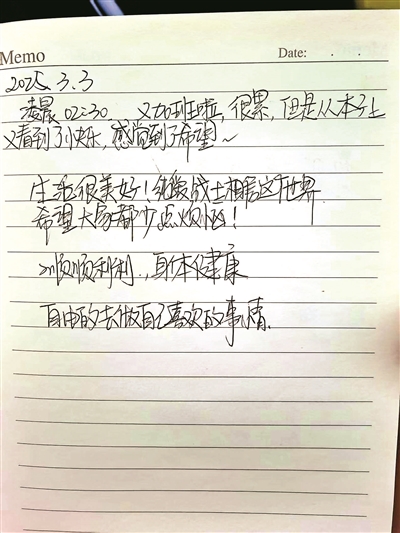 Memo Date: . .
2025.3.3
凌晨02:30 又加班啦,很累,但是从本子上
又看到了快乐,感觉到了希望~
生活很美好!纯爱战士相信这个世界
希望大家都少点烦恼!
顺顺利利,身体健康
自由的去做自己喜欢的事情.